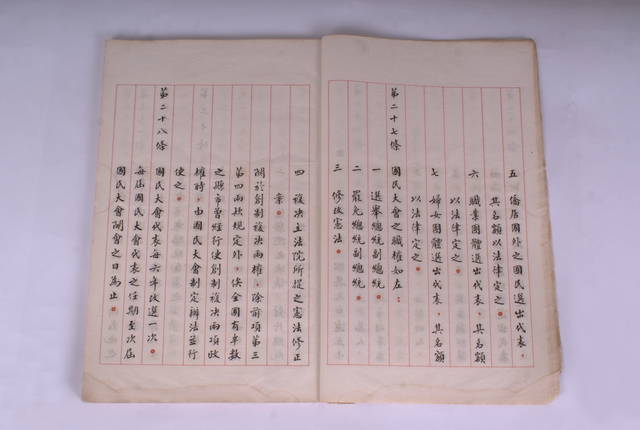 五 僑居國外之國民選出代表，
其名額以法律定之。
六 職業團體選出代表，其名額
以法律定之。
七 婦女團體選出代表，其名額
以法律定之。
第二十七條
國民大會之職權如左：
一 選舉總統副總統。
二 罷免總統副總統。
三 修改憲法。
四 複決立法院所提之憲法修正
案。
關於創制複決兩權，除前項第三
第四兩款規定外，俟全國有半數
之縣市曾經行使創制複決兩項政
權時，由國民大會制定辦法並行
使之。
第二十八條
國民大會代表每六年改選一次。
每屆國民大會代表之任期至次屆
國民大會開會之日為止。